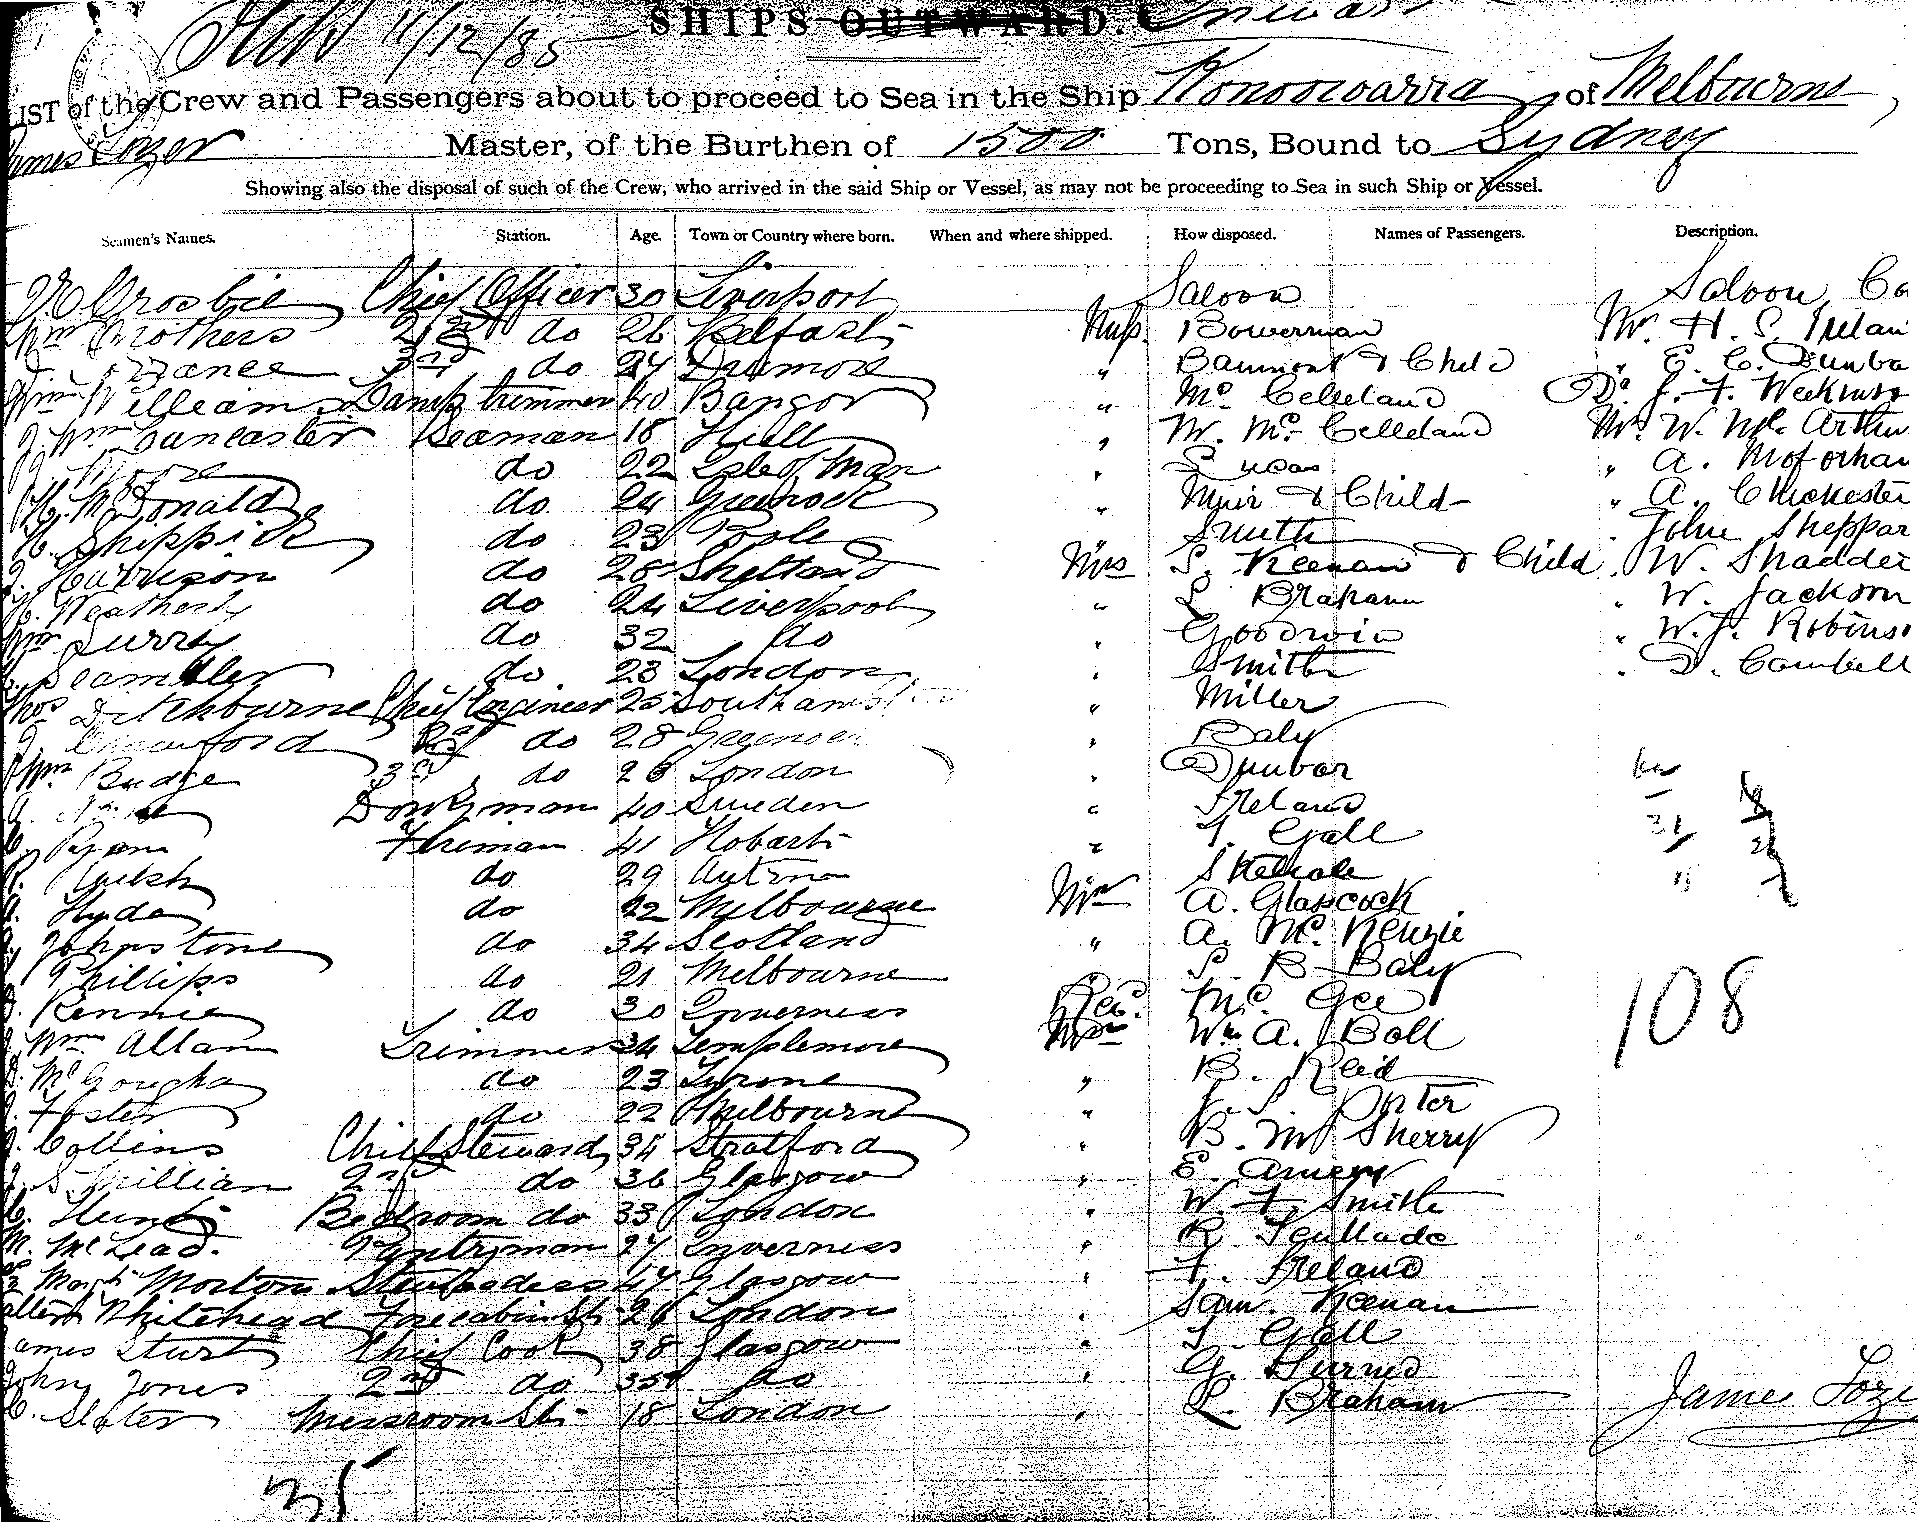 4/12/85
SHIPS OUTWARD. Inward
LIST of the Crew and Passengers about to proceed to Sea in the Ship Konoowarra of Melbourne,
James Lozer Master, of the Burthen of 1500 Tons, Bound to Sydney
Showing also the disposal of such of the Crew, who arrived in the said Ship or Vessel, as may not be proceeding to Sea in such Ship or Vessel.
Seamen's Names. Station. Age. Town or Country where born. When and where shipped. How disposed. Names of Passengers. Description.
Crosbie Chief Officer 30 Liverpool Saloon Saloon Co
Wm Brothers 2nd do 26 Belfast Miss Bowerman Mr. H. S. Irelan
3rd do 24 Dromore " Baumont & Child " E. C. Dunba
Wm Williams Lamp trimmer 40 Bangor " Mc Celleland Dr J. F. Weekins
J. Wm Lancaster Seaman 18 Hull " W. Mc Celleland Mr W. Mc Arthu
J. Moore do 22 Isle of Man " Lucas " A.
H. McDonald do 24 Greenock " Muir & Child " A. Chichester
H. Shippick do 23 Poole " Smith " John Sheppar
J. Harrison do 28 Shetland Mrs S. Keenan & Child " W. Shadde
Weatherly do 24 Liverpool " L Braham " W. Jackson
Wm Surry do 32 do " Goodwin " W. J. Robinso
Scambler do 23 London " Smith " D. Cambell
Thos Ditchbourne Chief Engineer 25 Southampt " Miller
J. Crawford 2nd do 28 Greenock " Baly
Wm Budge 3rd do 28 London " Dunbar
Donkyman 40 Sweden " Ireland
Ryan Fireman 41 Hobart " T. Gall
Welsh do 29 Antrim
Hyde do 22 Melbourne Mr A. Glasscock
Johnstone do 34 Scotland " A. Mc. Kenzie
Phillips do 21 Melbourne " S. B Baly
Rennie do 30 Inverness Rev. Mc. Gee
J. Wm Allan Trimmer 34 Templemore Mr Wm A. Boll
McGougha do 23 Tyrone " B. Reid
Foster do 22 Melbourne " J. S. Porter
J. Collins Chief Steward 34 Stratford " B. Mc Sherry
J. S. Millian 2nd do 36 Glasgow " E. Amery
C. Hunt Bedroom do 33 London " W. F. Smith
M. McLead. Pantryman 27 Inverness " R.
Margt Morton Stewardess 47 Glasgow " F. Ireland
Whitehead Forecabin St. 26 London " Sam. Keenan
James Sturt Chief Cook 38 Glasgow " T. Gall
John Jones 2nd do 35 do " G. Hurned
C. Slater Messroom St. 18 London " L. Braham
108
James Loze
35